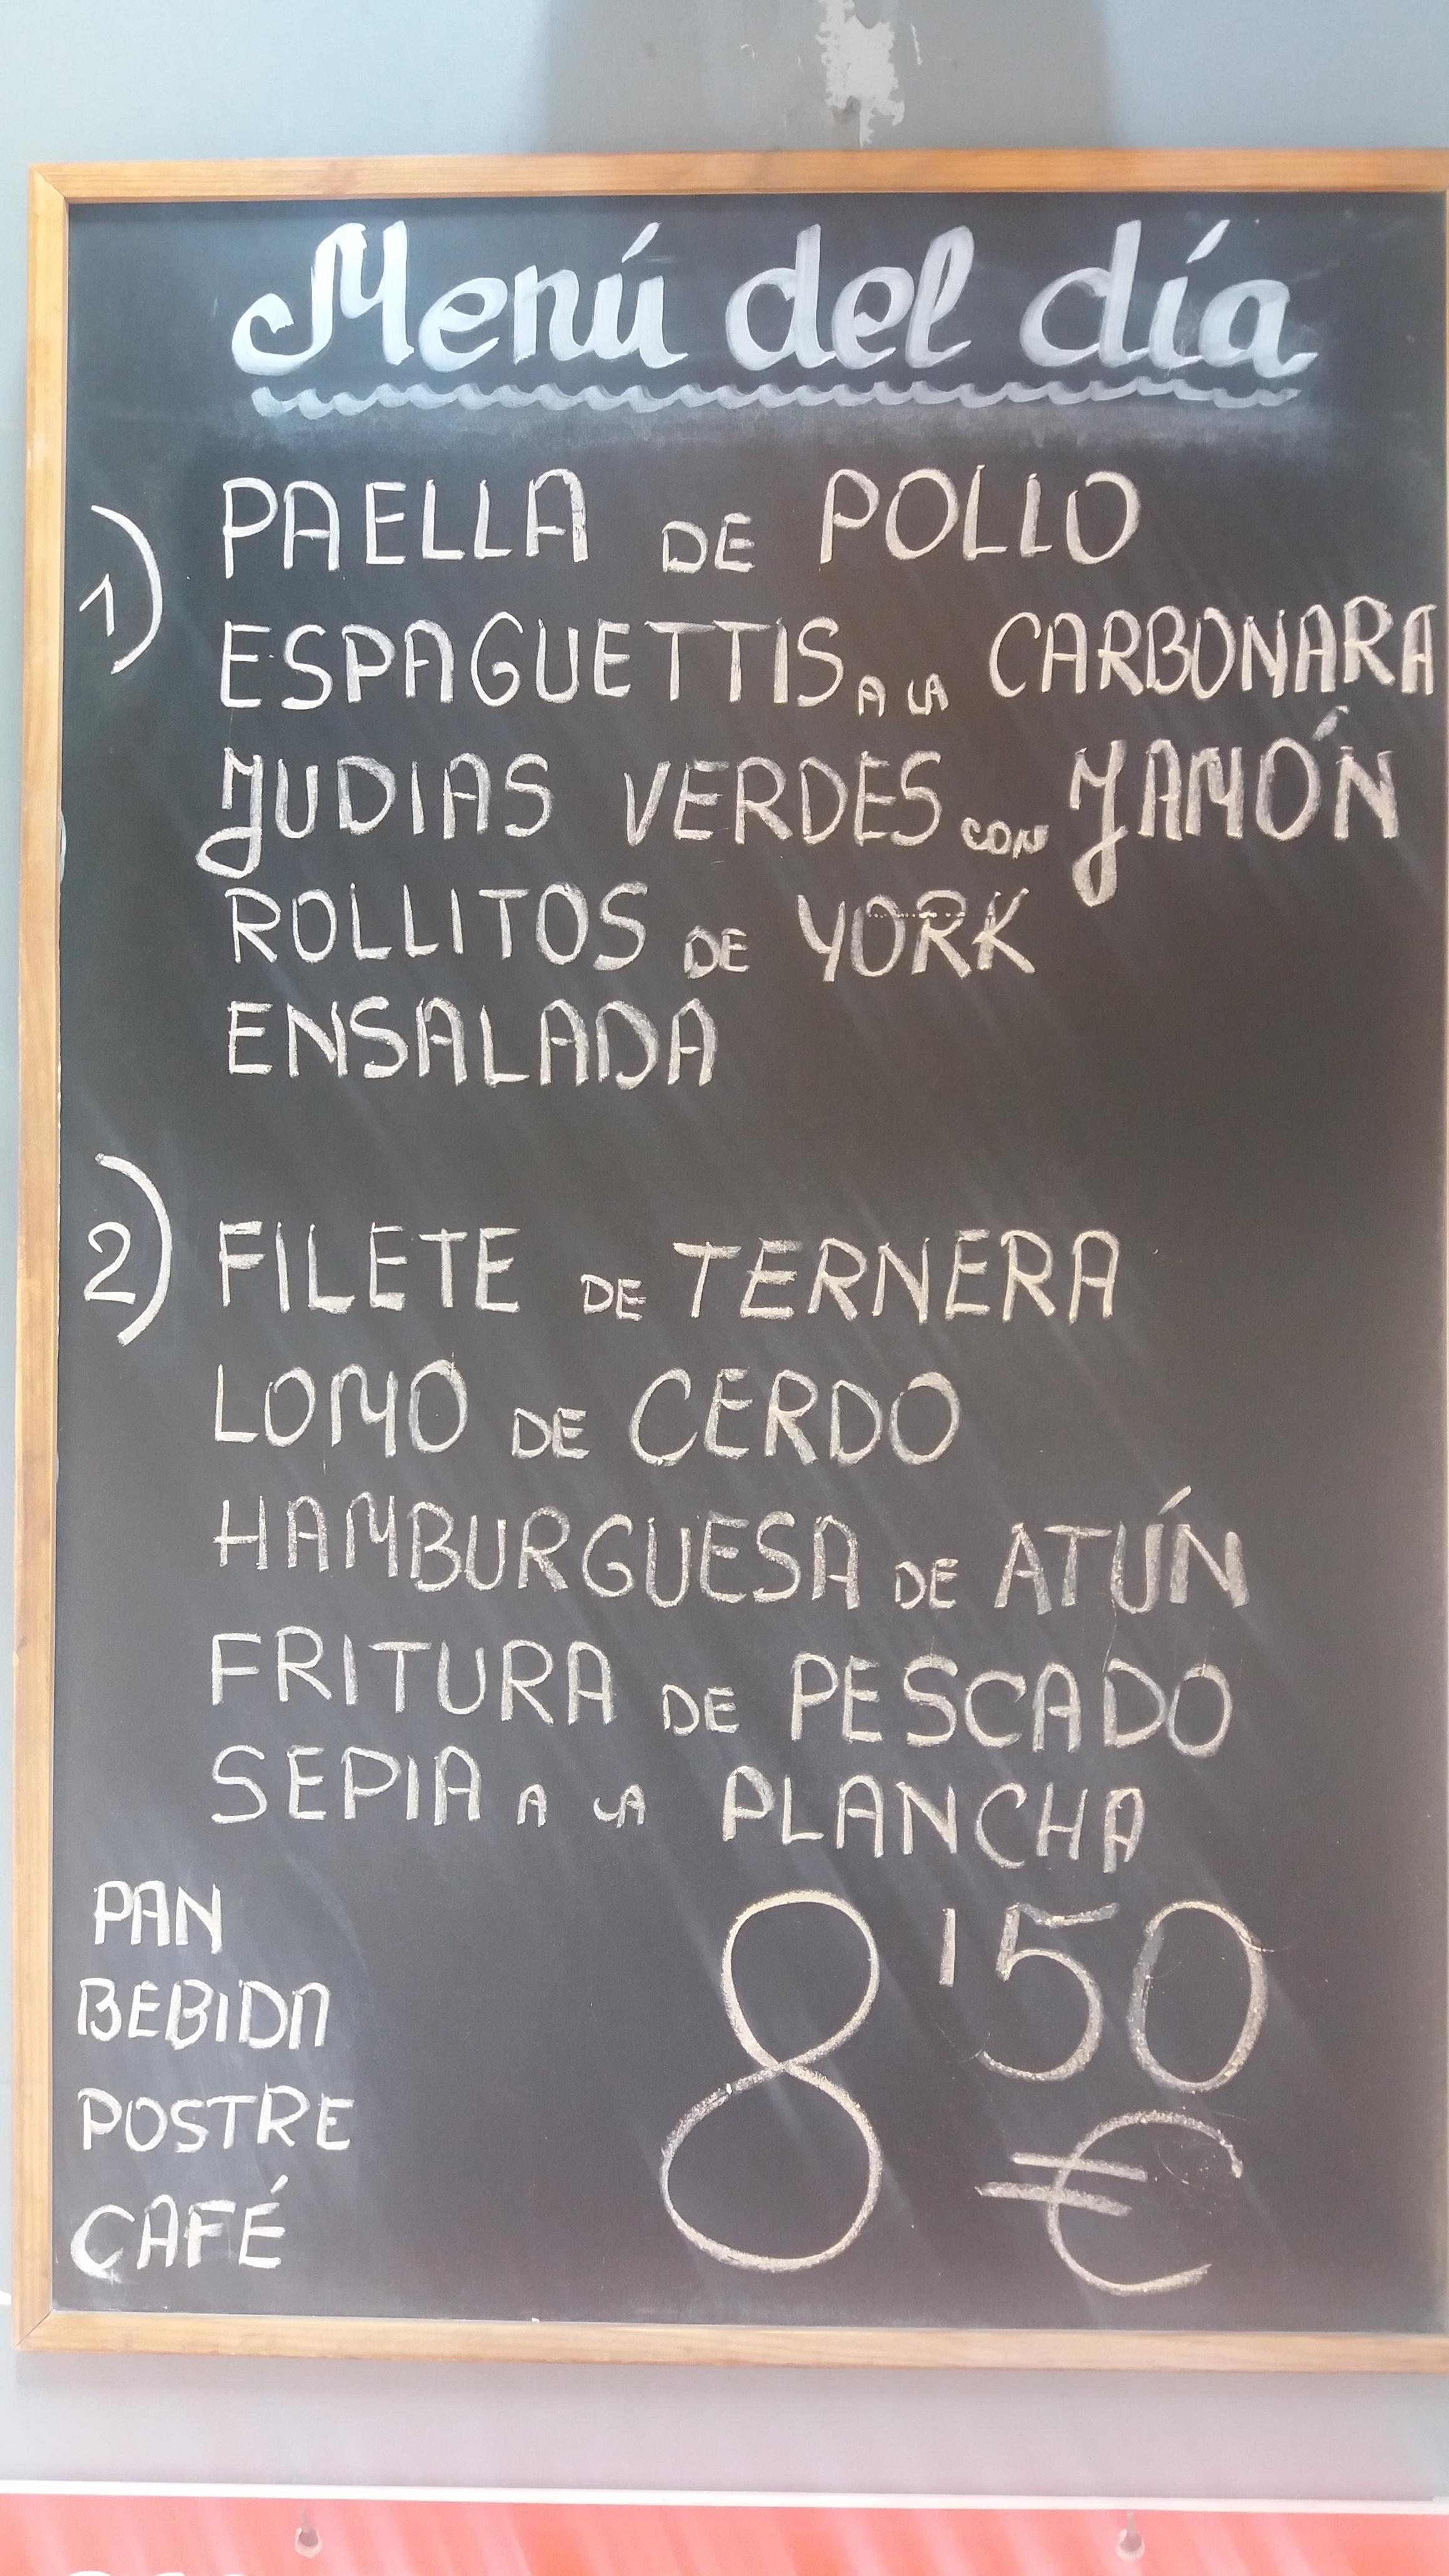 Menú del día
1) PAELLA DE POLLO
ESPAGUETTIS A LA CARBONARA
JUDIAS VERDES CON JAMÓN
ROLLITOS DE YORK
ENSALADA
2) FILETE DE TERNERA
LOMO DE CERDO
HAMBURGUESA DE ATÚN
FRITURA DE PESCADO
SEPIA A LA PLANCHA
PAN
BEBIDA
POSTRE
CAFÉ
8'50
€